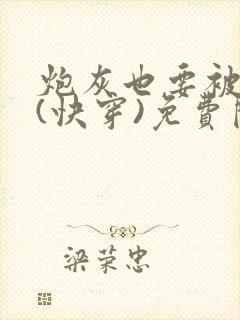 炮灰也要被
(快穿)免費
梁荣忠